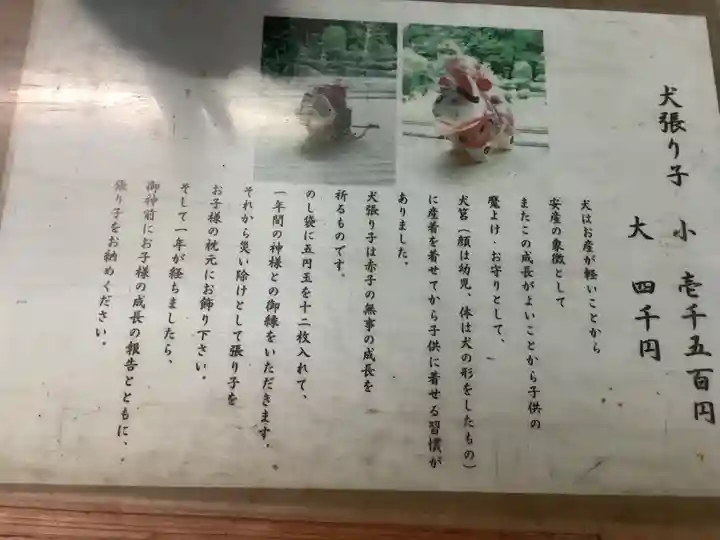 犬張り子 小 壱千五百円
大 四千円
犬はお産が軽いことから
安産の象徴として
またこの成長がよいことから子供の
魔よけ・お守りとして、
犬筥（顔は幼児、体は犬の形をしたもの）
に産着を着せてから子供に着せる習慣が
ありました。
犬張り子は赤子の無事の成長を
祈るものです。
のし袋に五円玉を十二枚入れて、
一年間の神様との御縁をいただきます。
それから災い除けとして張り子を
お子様の枕元にお飾り下さい。
そして一年が経ちましたら、
御神前にお子様の成長の報告とともに、
張り子をお納めください。